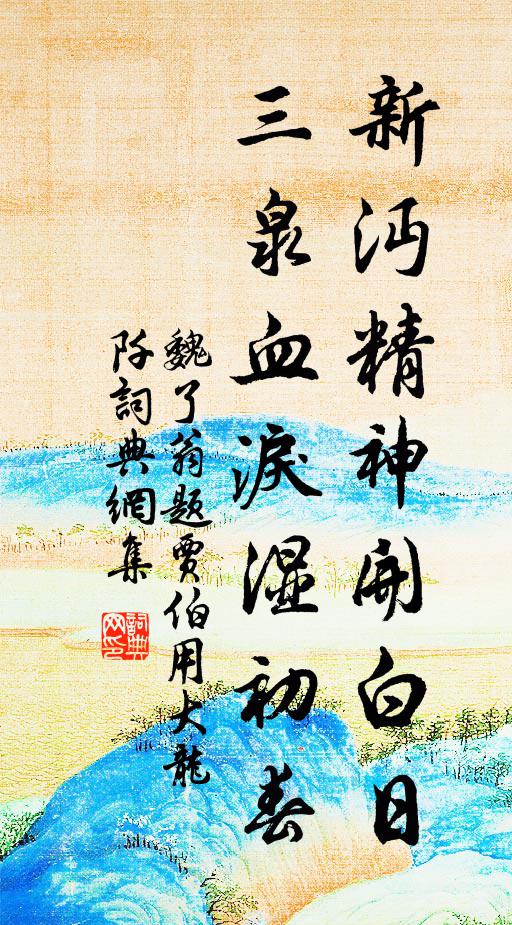 新沔精神開白日
三泉血淚濕初春
魏了翁題賈伯用大龍
阡詞典網集
詞典網印